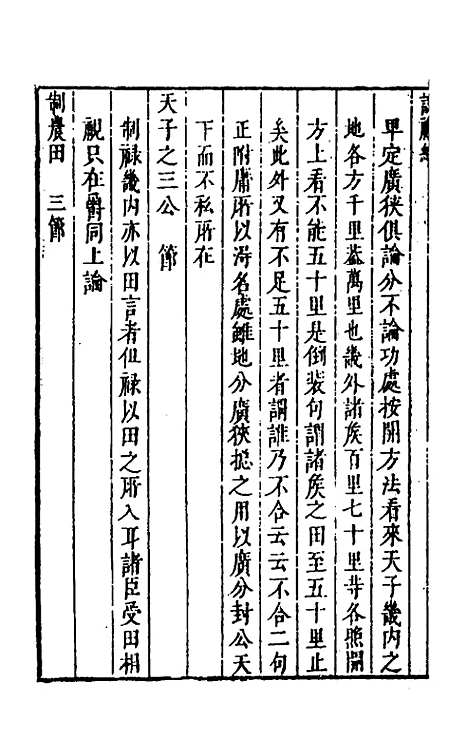 卑定廣狹俱論分不論功處按開方法看來天子畿内之
地各方千里葢萬里也畿外諸矦百里七十里等各照開
方上看不能五十里是倒裝句謂諸矦之田至五十里止
矣此外又有不足五十里者謂誰乃不合云云不合二句
正附庸所以淂名處雖地分廣狹搃之用以廣分封公天
下而不私所在
天子之三公　節
制禄畿内亦以田言者但禄以田之所入耳諸臣受田相
視只在爵同上論
制農田　三節